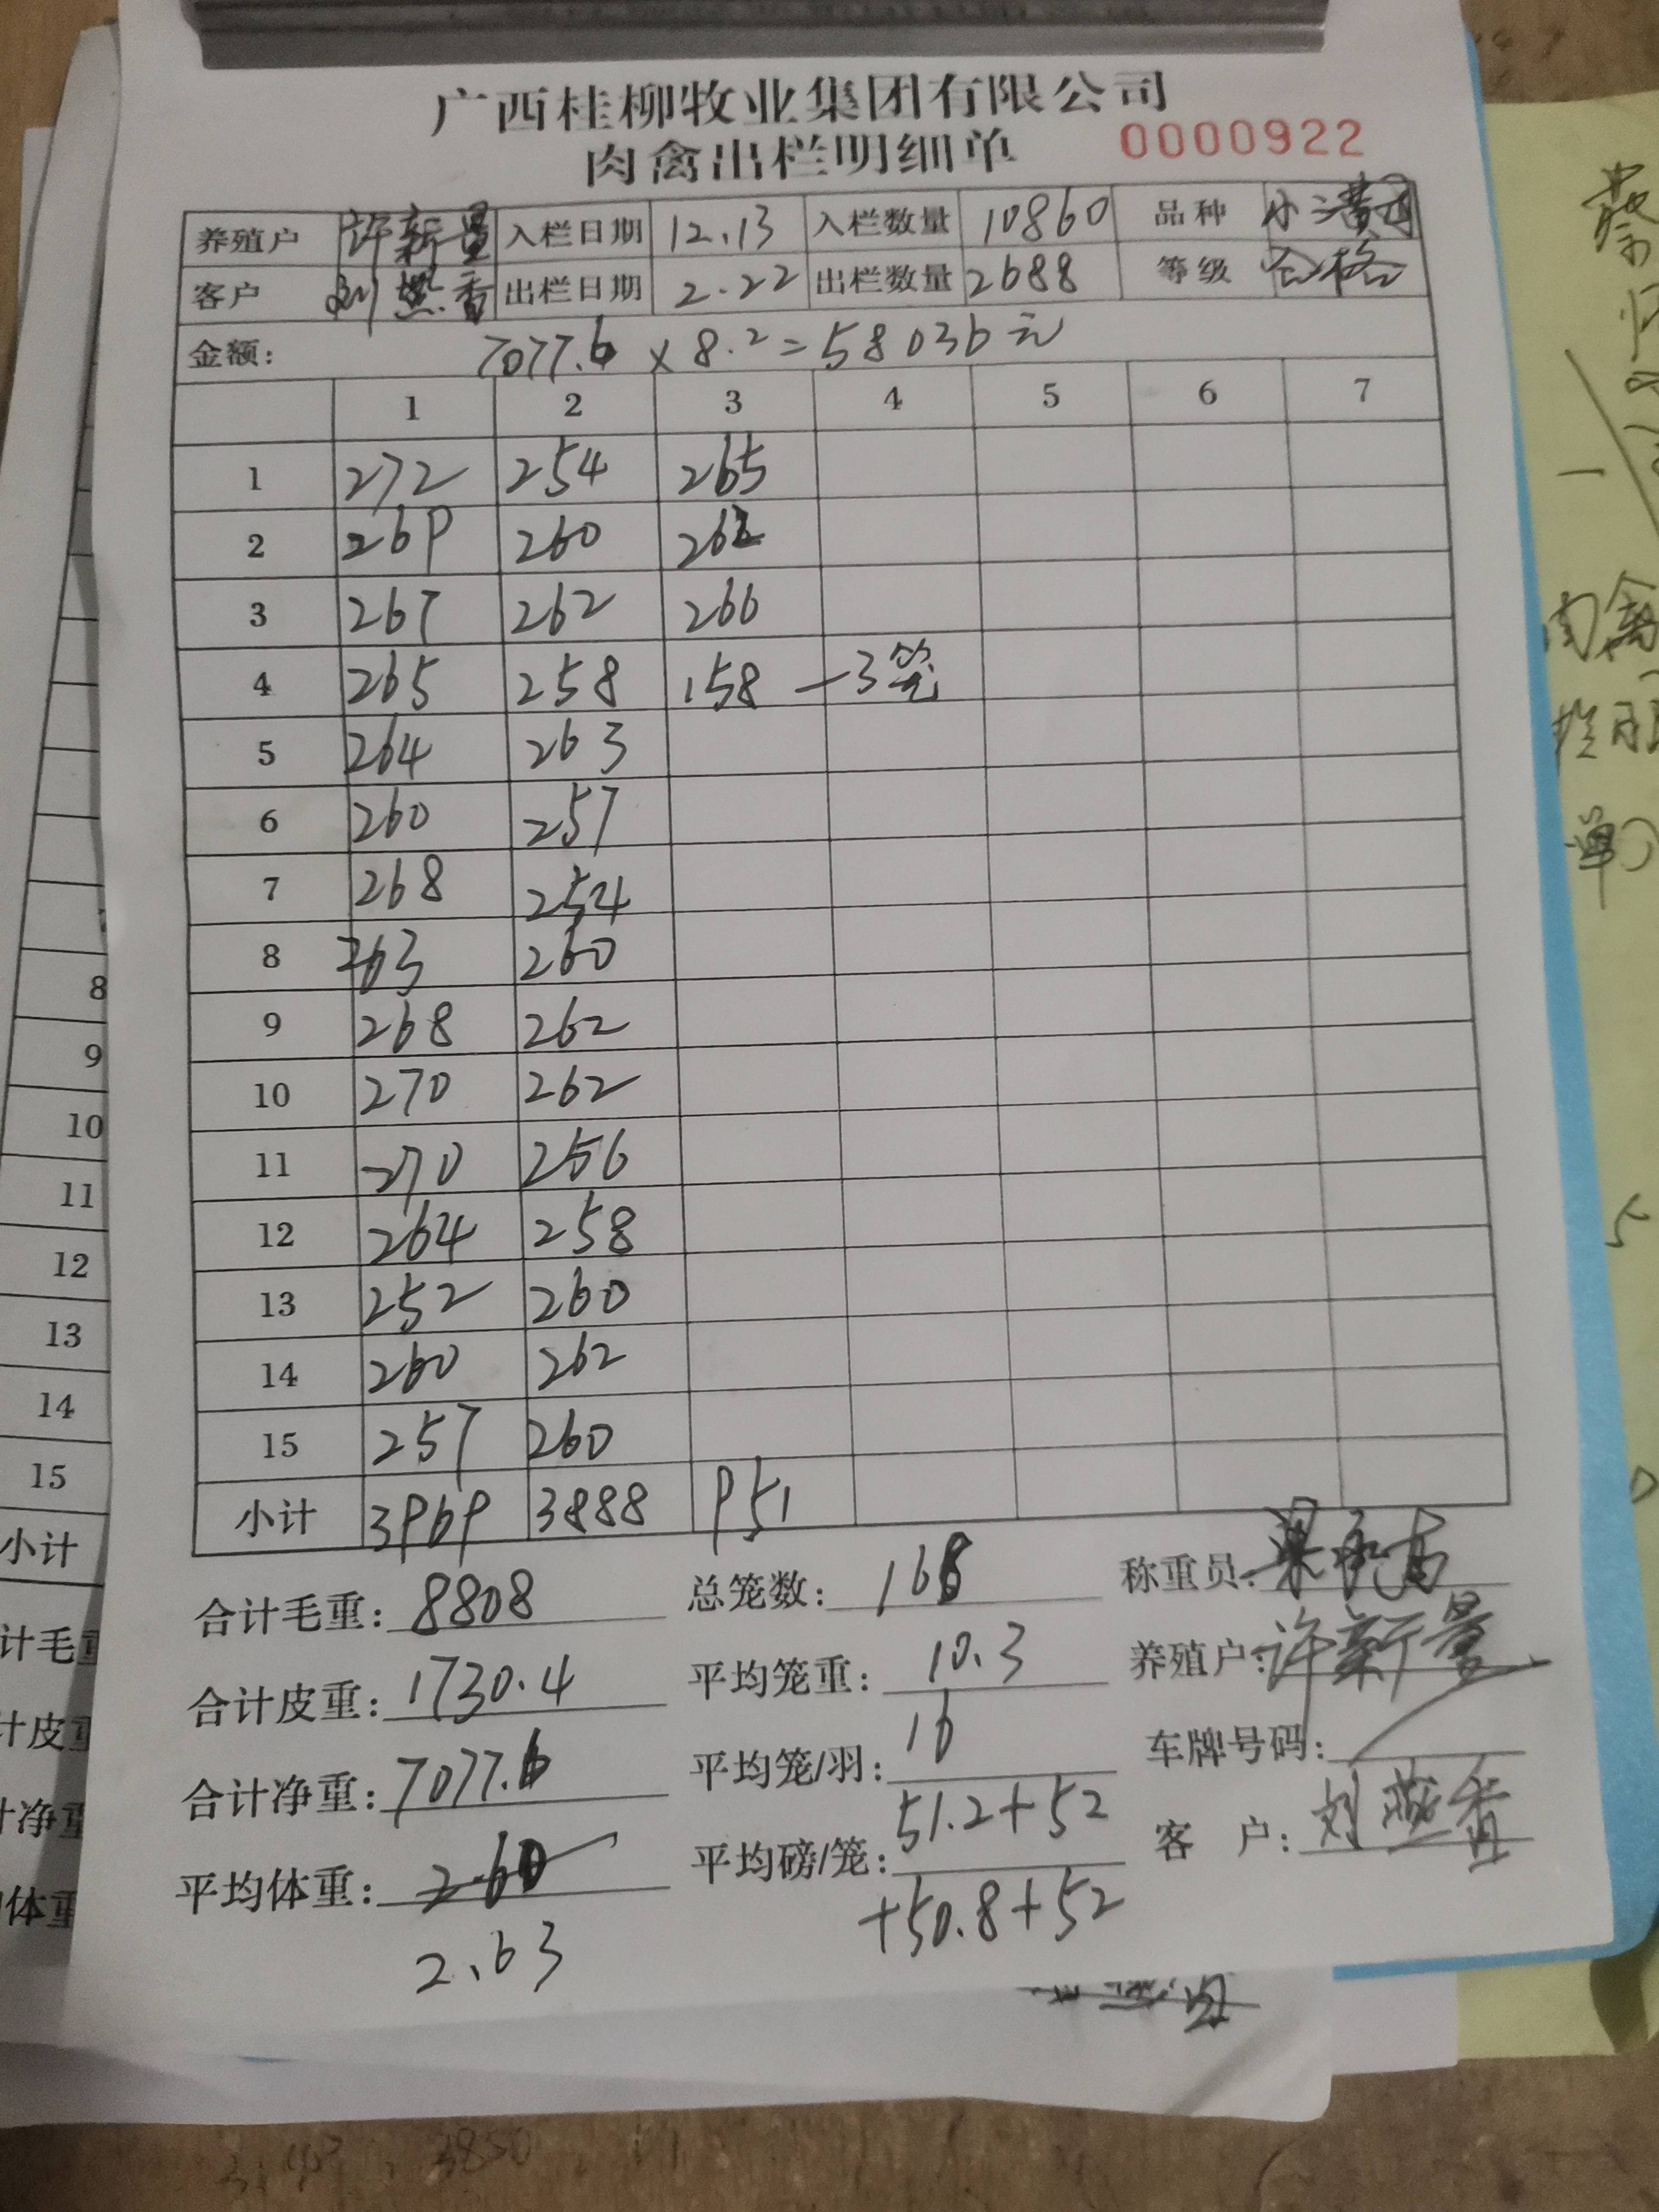 广西桂柳牧业集团有限公司
肉禽出栏明细单 0000922
养殖户 许新量 入栏日期 12.13 入栏数量 10860 品种
客户 刘燕香 出栏日期 2.22 出栏数量 2688 等级 合格
金额: 7077.6 x 8.2 = 58036元
1 2 3 4 5 6 7
1 272 254 265
2 269 260 262
3 267 262 266
4 265 258 158 —3笼
5 264 263
6 260 257
7 268 254
8 263 260
9 268 262
10 270 262
11 270 256
12 264 258
13 252 260
14 260 262
15 257 260
小计 3969 3888 951
合计毛重: 8808 总笼数: 168 称重员:
合计皮重: 1730.4 平均笼重: 10.3 养殖户: 许新量
合计净重: 7077.6 平均笼/羽: 16 车牌号码:
平均体重: 2.60 平均磅/笼: 51.2+52 客户: 刘燕香
2.63 +50.8+52
8
9
10
11
12
13
14
15
小计
计毛重
计皮重
计净重
体重
肉禽
单
5